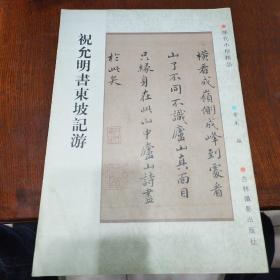 歷代小楷精品
吉林攝影出版社
橫看成嶺側成峰到處看
山了不同不識廬山真面目
只緣身在此山中廬山詩盡
於此矣
祝允明書東坡記游